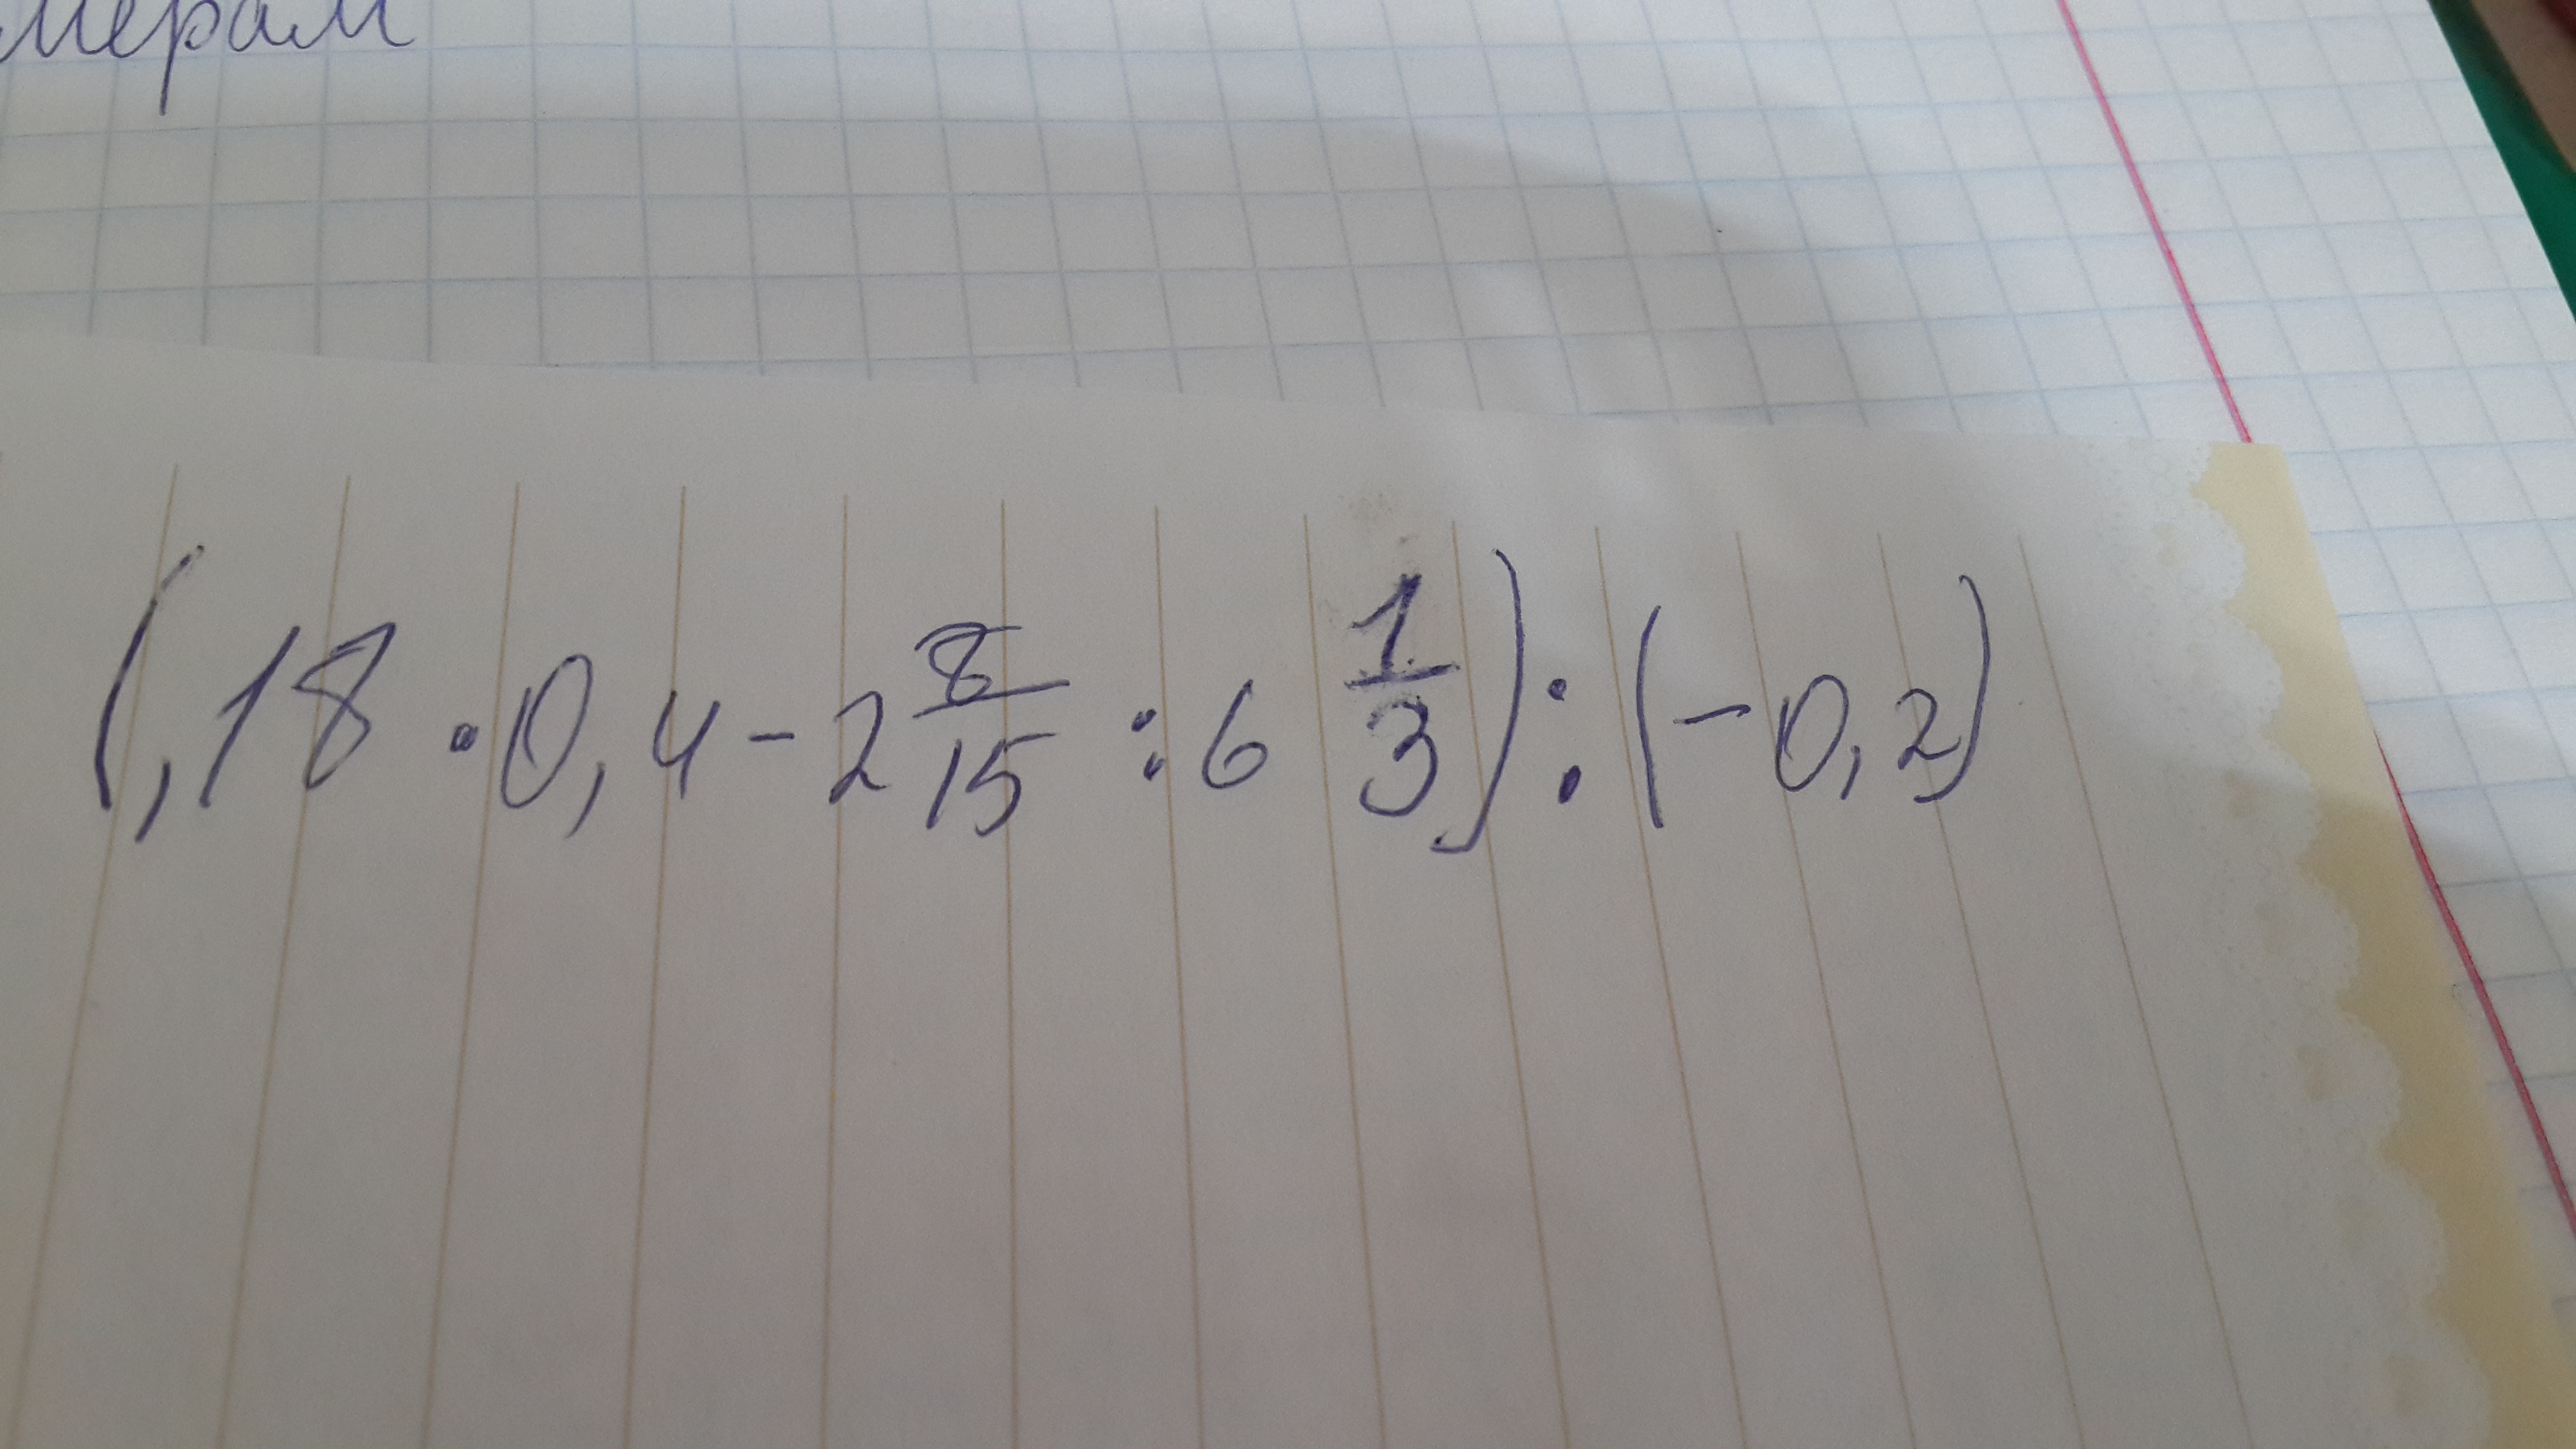 мерам
(,18 · 0,4 - 2 8/15 : 6 1/3) : (-0,2)